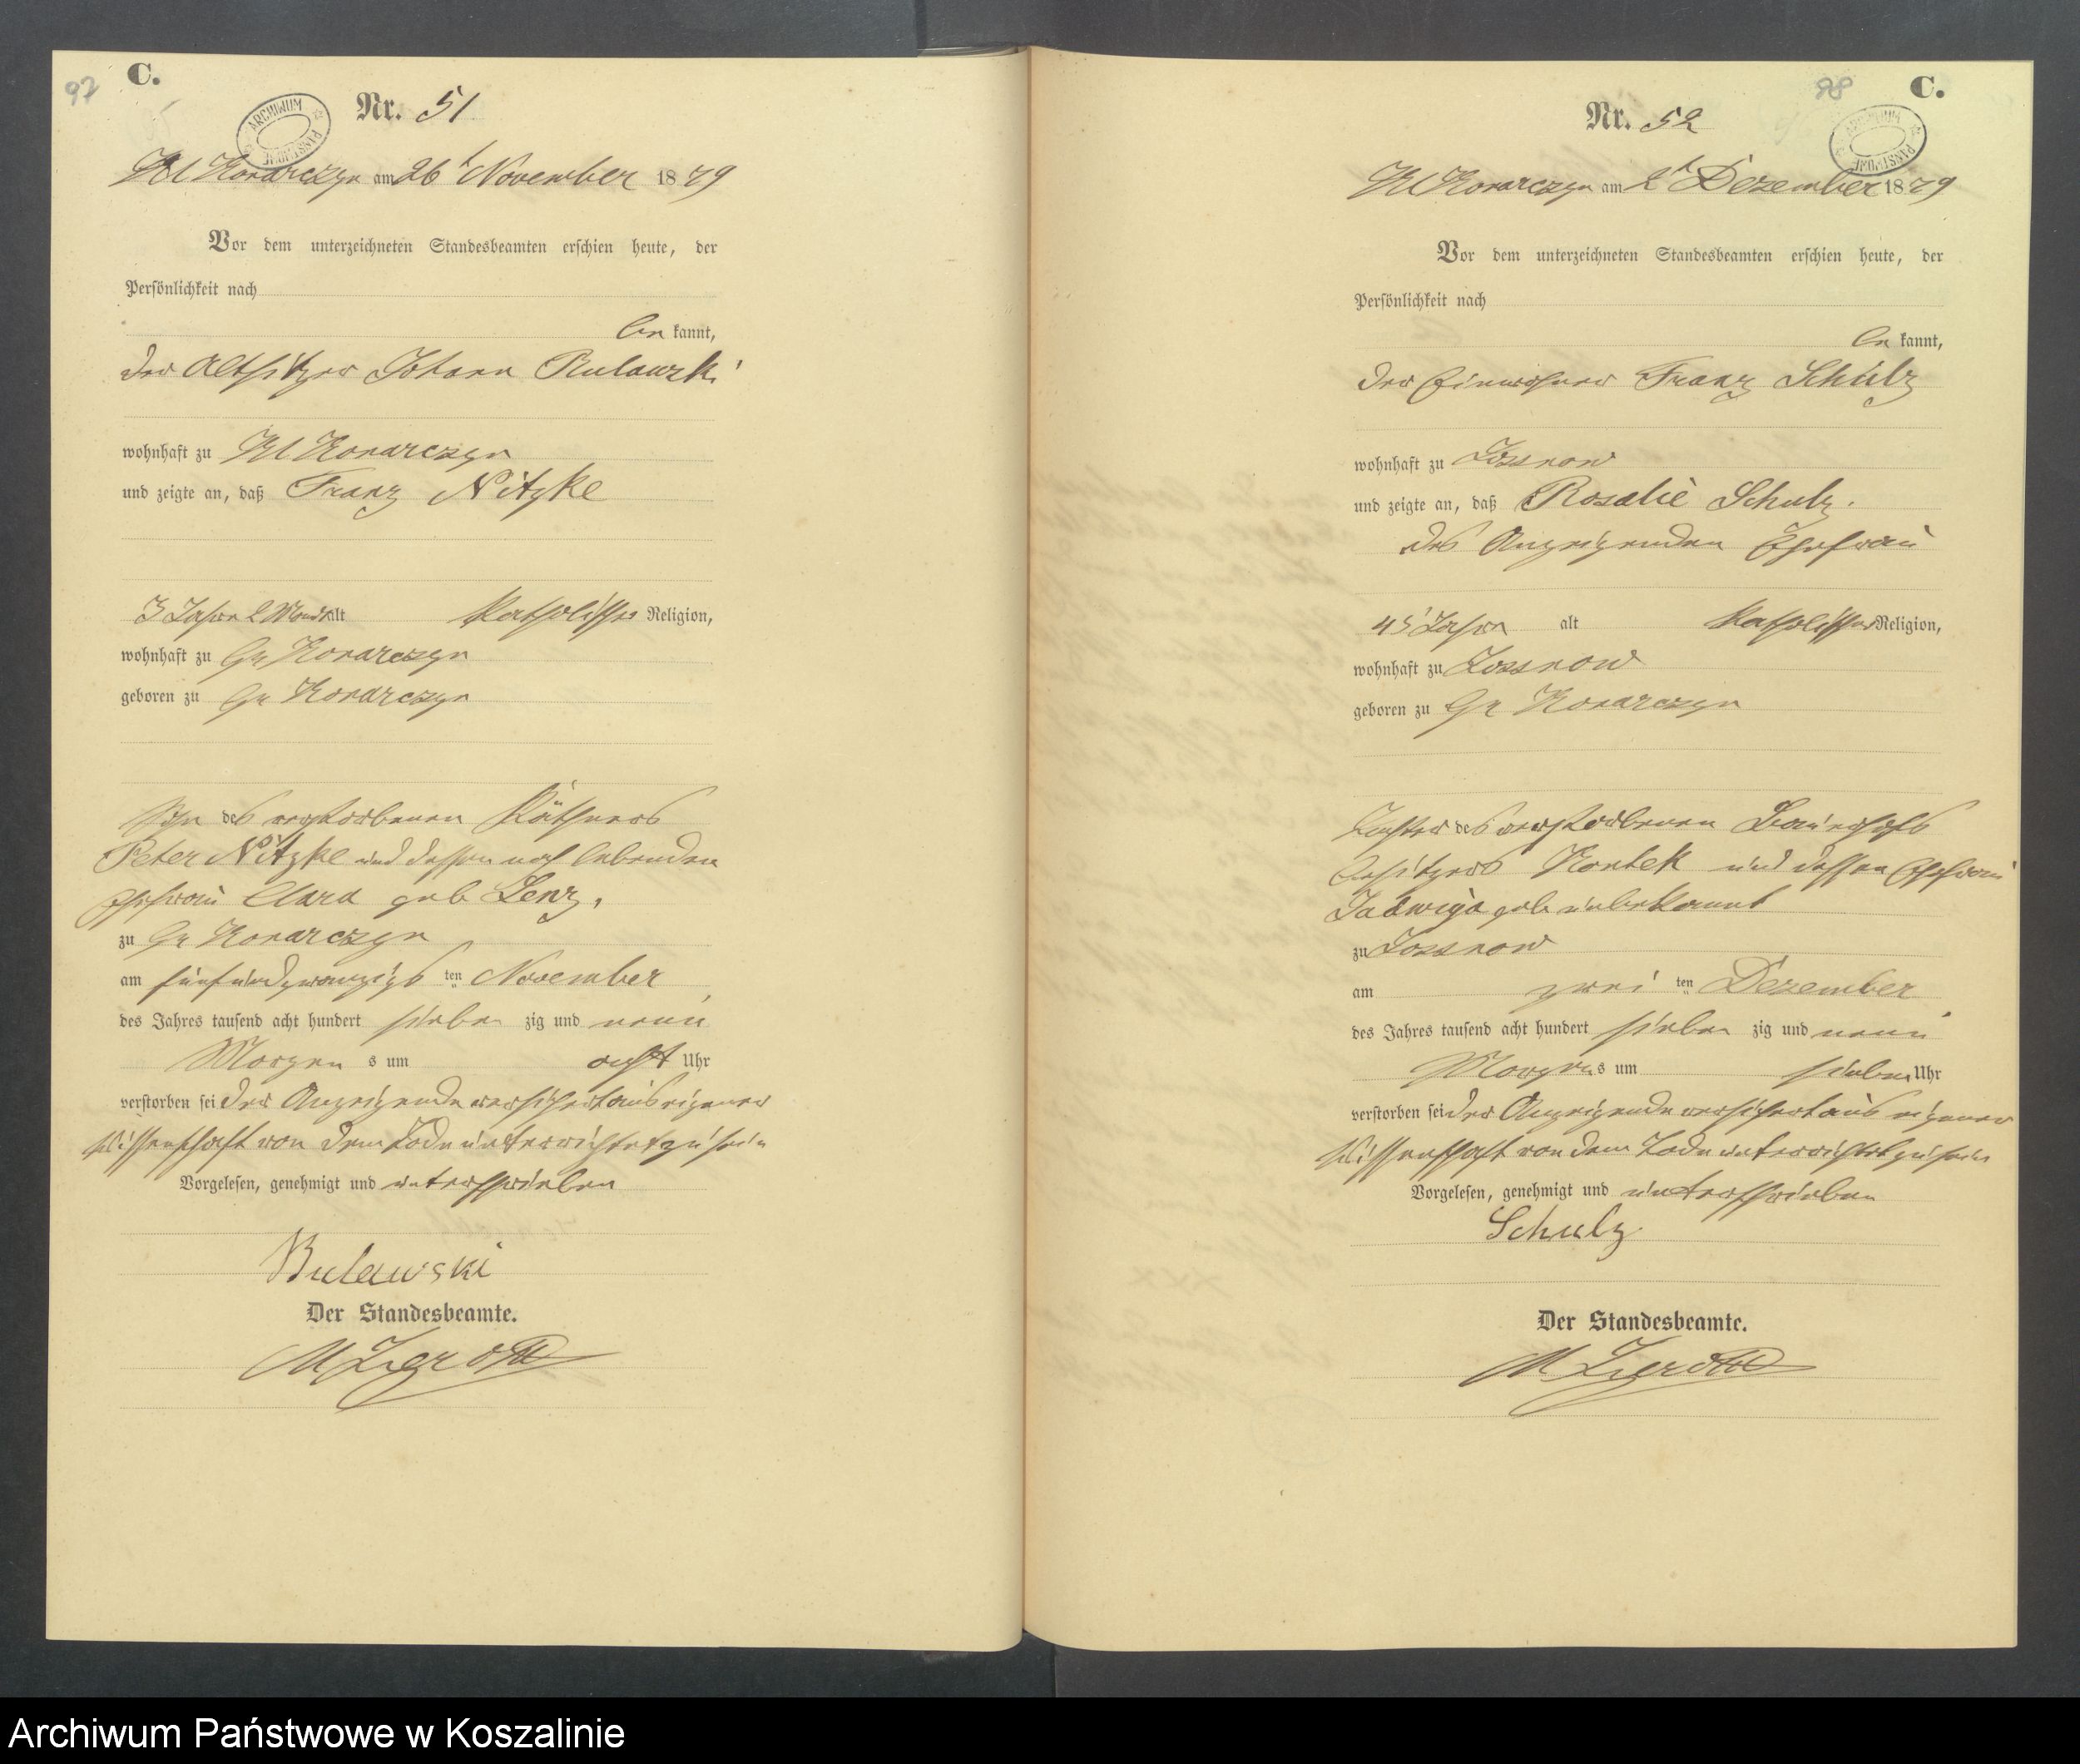 97
C.
ARCHIWUM PAŃSTWOWE
Nr. 51
Kl Konarczyn am 26t November 1879
Vor dem unterzeichneten Standesbeamten erschien heute, der
Persönlichkeit nach
be kannt,
der Altsitzer Johann Bulawski
wohnhaft zu Kl Konarczyn
und zeigte an, daß Franz Nitzke
3 Jahre 2 Monat alt Katholischer Religion,
wohnhaft zu Gr Konarczyn
geboren zu Gr Konarczyn
Sohn des verstorbenen Käthners
Peter Nitzke und dessen noch lebenden
Ehefrau Clara geb Lenz,
zu Gr Konarczyn
am fünfundzwanzigs ten November
des Jahres tausend acht hundert sieben zig und neun
Morgen s um acht Uhr
verstorben sei der Anzeigende versichert aus eigener
Wissenschaft von dem Tode unterrichtet zu sein
Vorgelesen, genehmigt und unterschrieben
Bulawski
Der Standesbeamte.
98
C.
ARCHIWUM PAŃSTWOWE
Nr. 52
Kl Konarczyn am 2t Dezember 1879
Vor dem unterzeichneten Standesbeamten erschien heute, der
Persönlichkeit nach
be kannt,
der Einwohner Franz Schulz
wohnhaft zu Zossnow
und zeigte an, daß Rosalie Schulz.
des Anzeigenden Ehefrau
45 Jahre alt Katholischer Religion,
wohnhaft zu Zossnow
geboren zu Gr Konarczyn
Tochter des verstorbenen Bauerhofs
besitzers Kontek und dessen Ehefrau
Jadwiga geb unbekannt
zu Zossnow
am zwei ten Dezember
des Jahres tausend acht hundert sieben zig und neun
Morgens s um sieben Uhr
verstorben sei der Anzeigende versichert aus eigener
Wissenschaft von dem Tode unterrichtet zu sein
Vorgelesen, genehmigt und unterschrieben
Schulz
Der Standesbeamte.
Archiwum Państwowe w Koszalinie